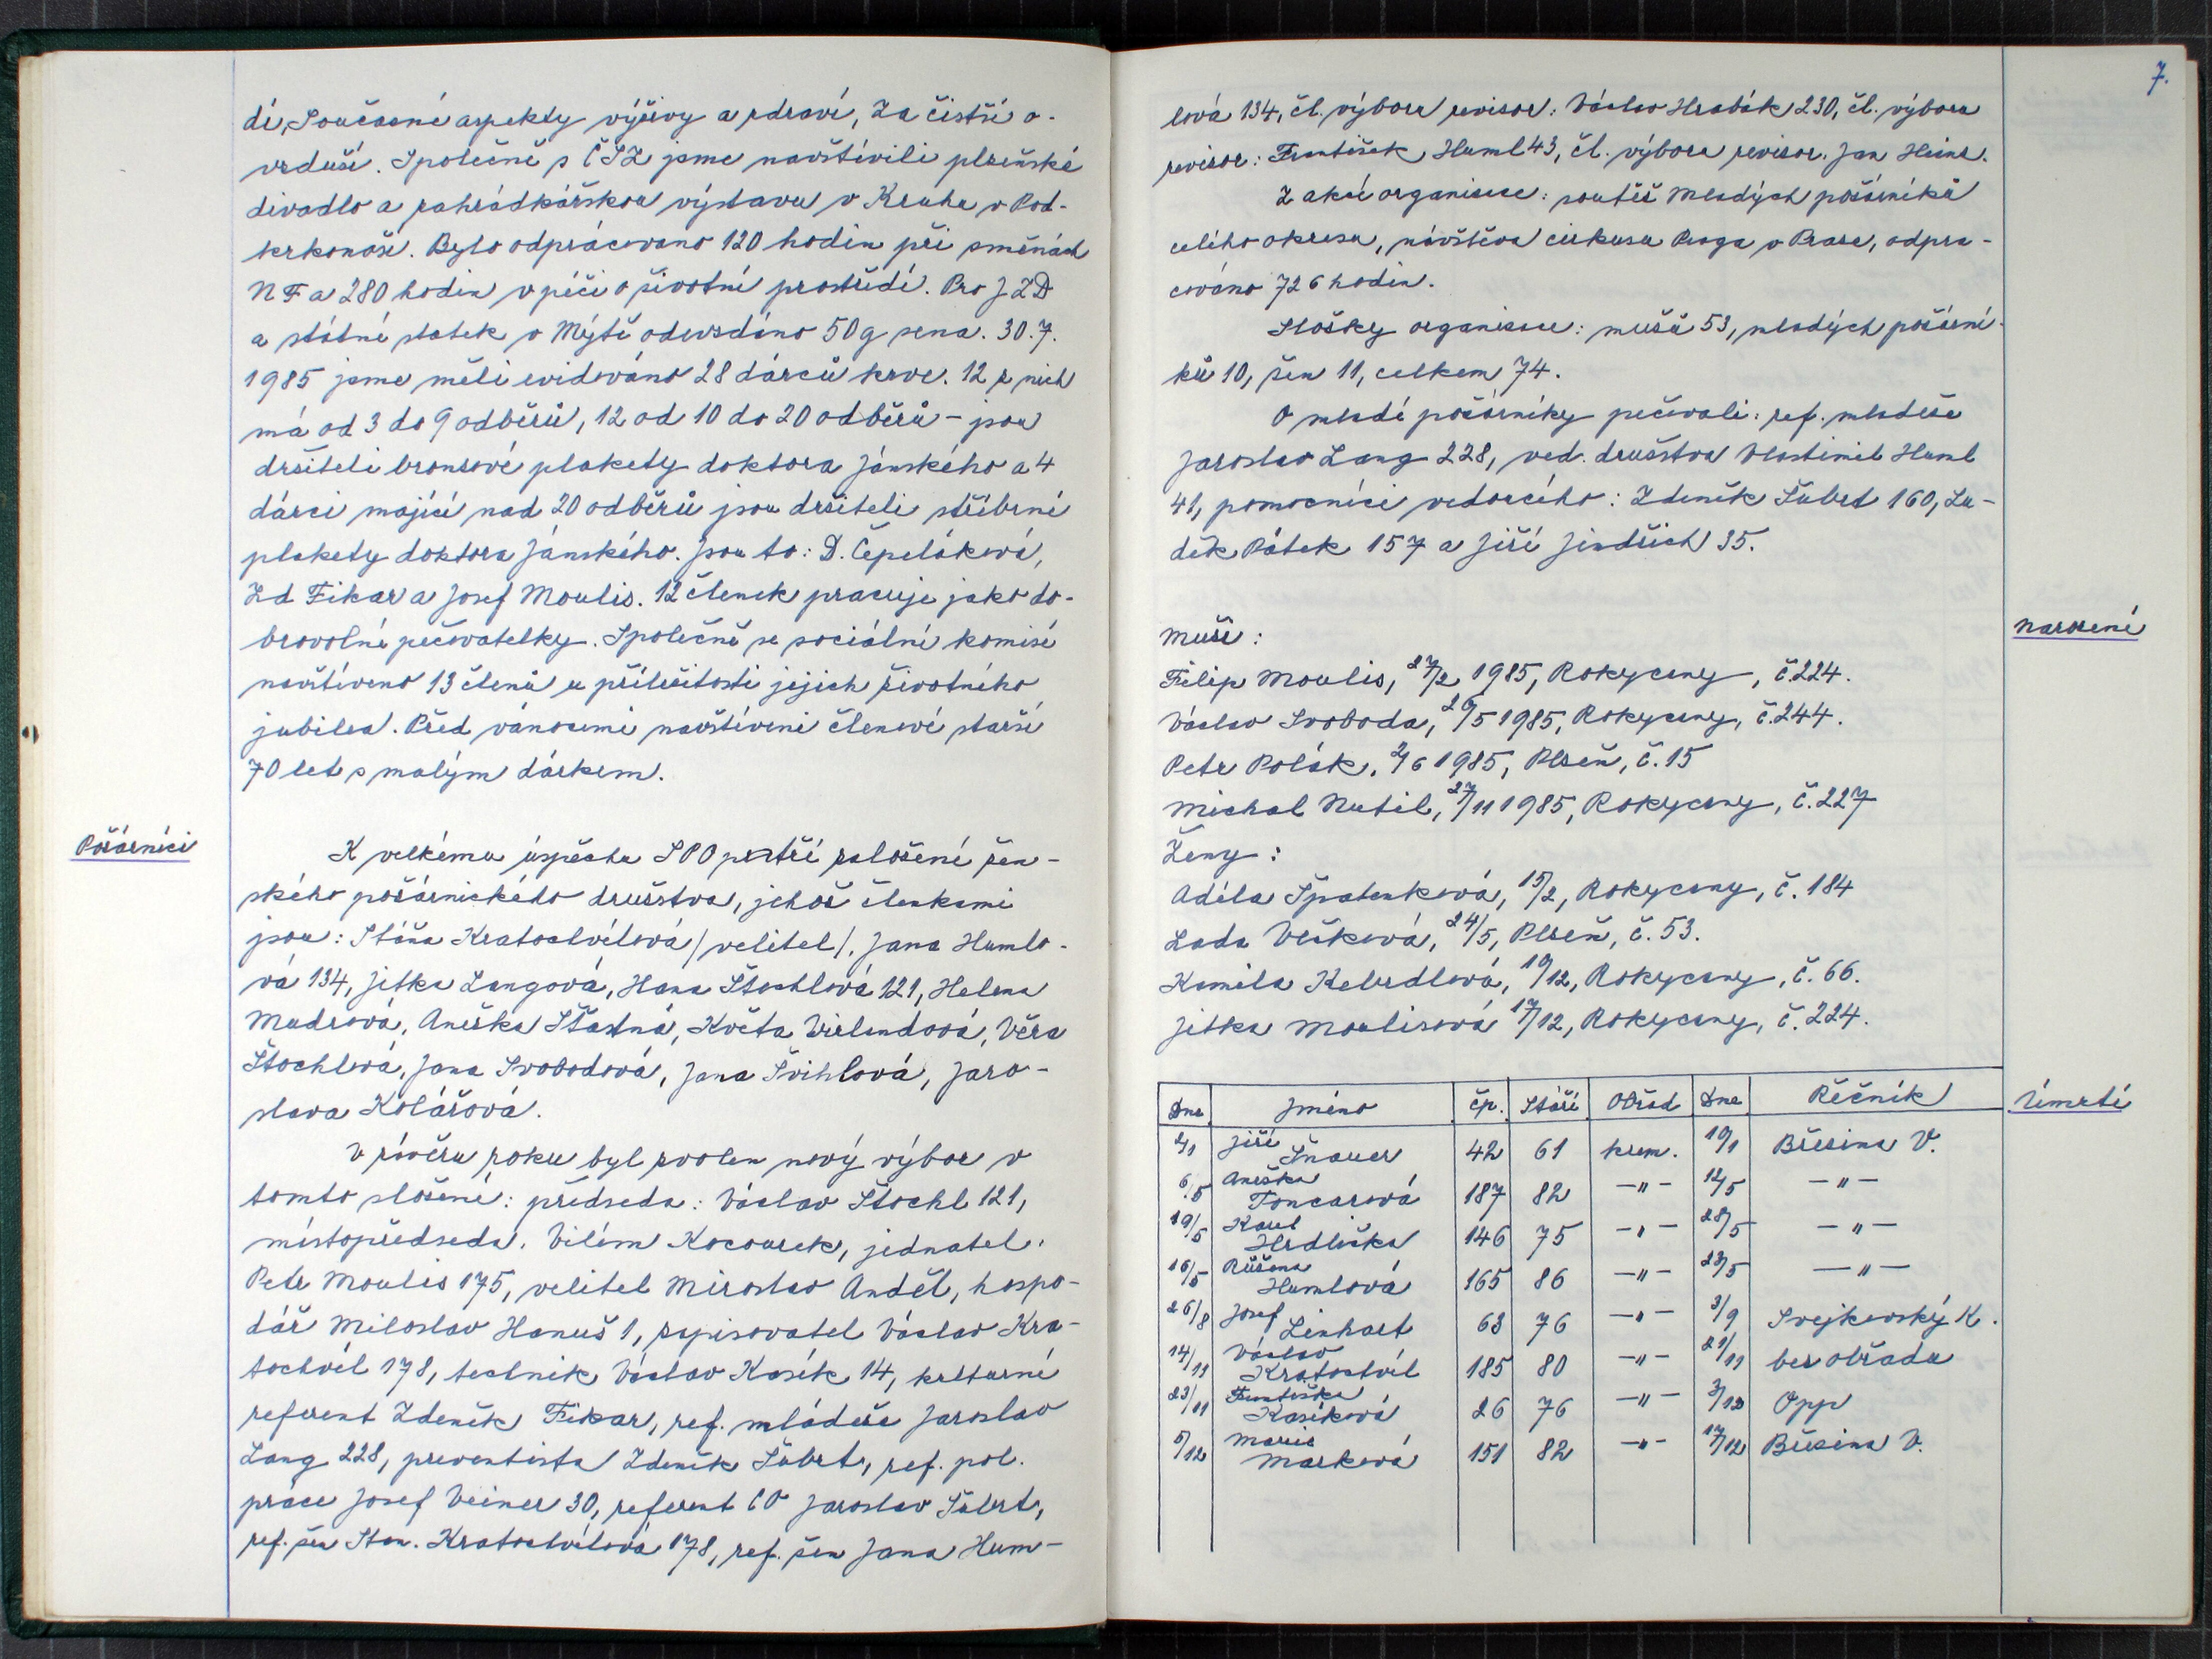 dí, Současné aspekty výživy a zdraví, Za čistší o-
vzduší. Společně s ČSŽ jsme navštívili plzeňské
divadlo a zahrádkářskou výstavu v Kruhu v Pod-
krkonoší. Bylo odpracováno 120 hodin při směnách
NF a 280 hodin v péči o životní prostředí. Pro JZD
a státní statek v Mýtě odevzdáno 50 q sena. 30. 7.
1985 jsme měli evidováno 28 dárců krve. 12 z nich
má od 3 do 9 odběrů, 12 od 10 do 20 odběrů - jsou
držiteli bronzové plakety doktora Jánského a 4
dárci mající nad 20 odběrů jsou držiteli stříbrné
plakety doktora Jánského. Jsou to: D. Čepeláková,
Zd Fikar a Josef Moulis. 12 členek pracuje jako do-
brovolné pečovatelky. Společně se sociální komisí
navštíveno 13 členů u příležitosti jejich životního
jubilea. Před vánocemi navštíveni členové starší
70 let s malým dárkem.
Požárníci
K velkému úspěchu SPO patří založení žen-
ského požárnického družstva, jehož členkami
jsou: Stáňa Kratochvílová /velitel/, Jana Humlo-
vá 134, Jitka Langová, Hana Štochlová 121, Helena
Mudrová, Anežka Šťastná, Květa Wirlandová, Věra
Štochlová, Jana Svobodová, Jana Švihlová, Jaro-
slava Kolářová.
V závěru roku byl zvolen nový výbor v
tomto složení: předseda: Václav Štochl 121,
místopředseda: Vilém Kocourek, jednatel:
Petr Moulis 175, velitel Miroslav Anděl, hospo-
dář Miloslav Hanuš 1, zapisovatel Václav Kra-
tochvíl 178, technik Václav Kasík 14, kulturní
referent Zdeněk Fikar, ref. mládeže Jaroslav
Lang 228, preventista Zdeněk Šubrt, ref. pol.
práce Josef Veiner 30, referent CO Jaroslav Šubrt,
ref. žen Stan. Kratochvílová 178, ref. žen Jana Hum-
7.
lová 134, čl. výboru revisor: Václav Hrabák 230, čl. výboru
revisor: František Huml 43, čl. výboru revisor. Jan Heinz.
Z akcí organisace: soutěž Mladých požárníků
celého okresu, návštěva cirkusu Praga v Praze, odpra-
cováno 726 hodin.
Složky organisace: mužů 53, mladých požární-
ků 10, žen 11, celkem 74.
O mladé požárníky pečovali: ref. mládeže
Jaroslav Lang 228, ved. družstva Vlastimil Huml
41, pomocníci vedoucího: Zdeněk Šubrt 160, Lu-
děk Pátek 157 a Jiří Jindřich 35.
Narození
Muži:
Filip Moulis, 27/2 1985, Rokycany, č. 224.
Václav Svoboda, 26/5 1985, Rokycany, č. 244.
Petr Polák, 2/6 1985, Plzeň, č. 15
Michal Nutil, 27/11 1985, Rokycany, č. 227
Ženy:
Adéla Špatenková, 15/2, Rokycany, č. 184
Lada Vlčková, 24/5, Plzeň, č. 53.
Kamila Kebrdlová, 10/12, Rokycany, č. 66.
Jitka Moulisová 17/12, Rokycany, č. 224.
Úmrtí
Dne Jméno čp. Stáří Obřad Dne Řečník
2/1 Jiří Šnauer 42 61 krem. 10/1 Březina V.
6/5 Anežka Foncarová 187 82 -"- 12/5 -"-
19/5 Karel Hrdlička 146 75 -"- 28/5 -"-
16/5 Růžena Humlová 165 86 -"- 23/5 -"-
26/8 Josef Linhart 63 76 -"- 3/9 Svejkovský K.
14/11 Václav Kratochvíl 185 80 -"- 21/11 bez obřadu
23/11 Františka Kasíková 26 76 -"- 3/12 Opp
5/12 Marie Marková 151 82 -"- 17/12 Březina V.